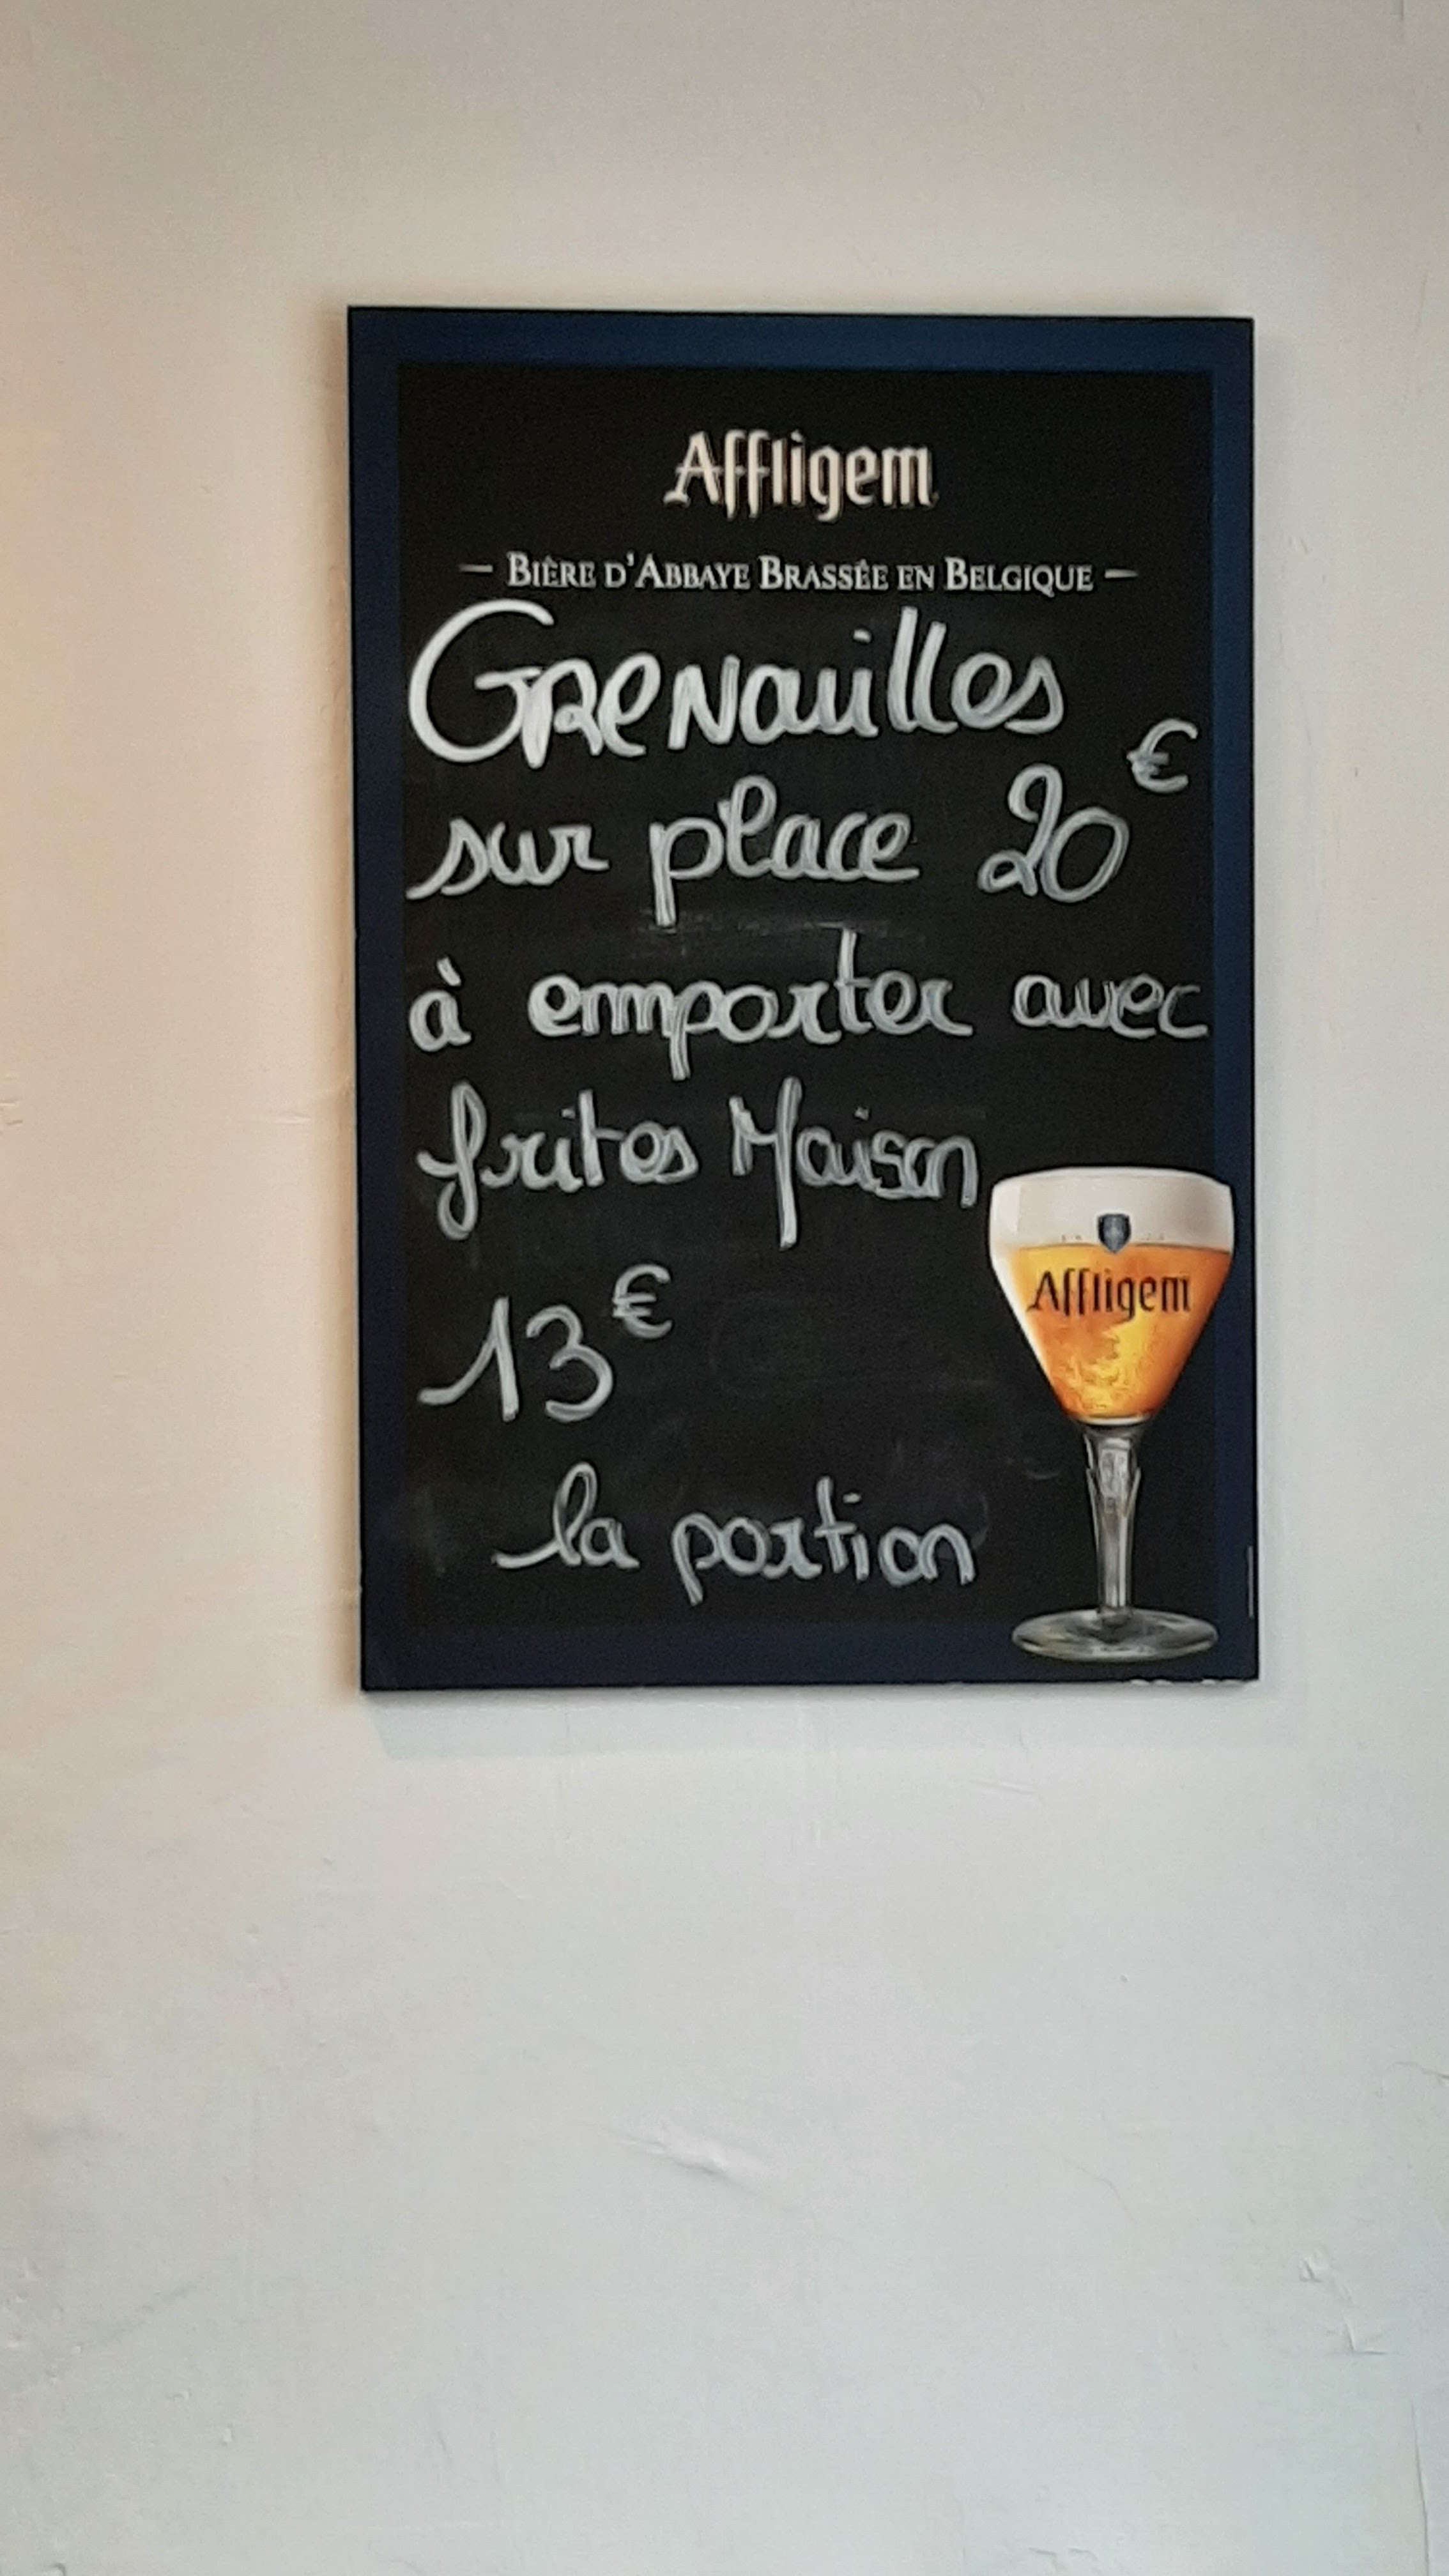 Affligem
— BIÈRE D'ABBAYE BRASSÉE EN BELGIQUE —
GReNouilles
sur place 20 €
à emporter avec
frites Maison
13 €
la portion
Affligem